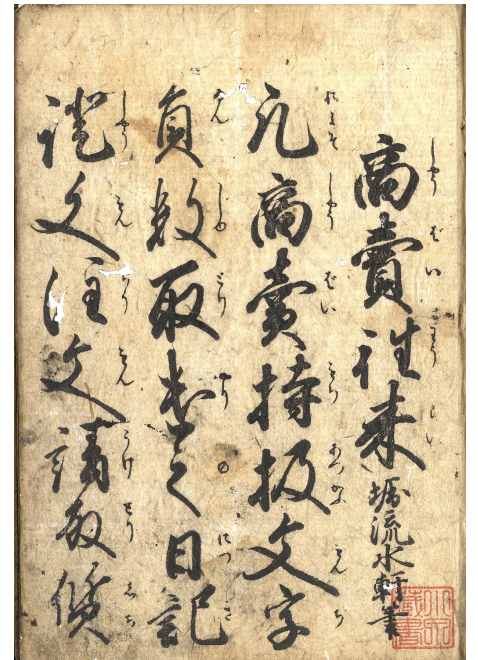 商賣往来 堀流水軒筆
凡商賣持扱文字
員数取遣之日記
證文注文請取質